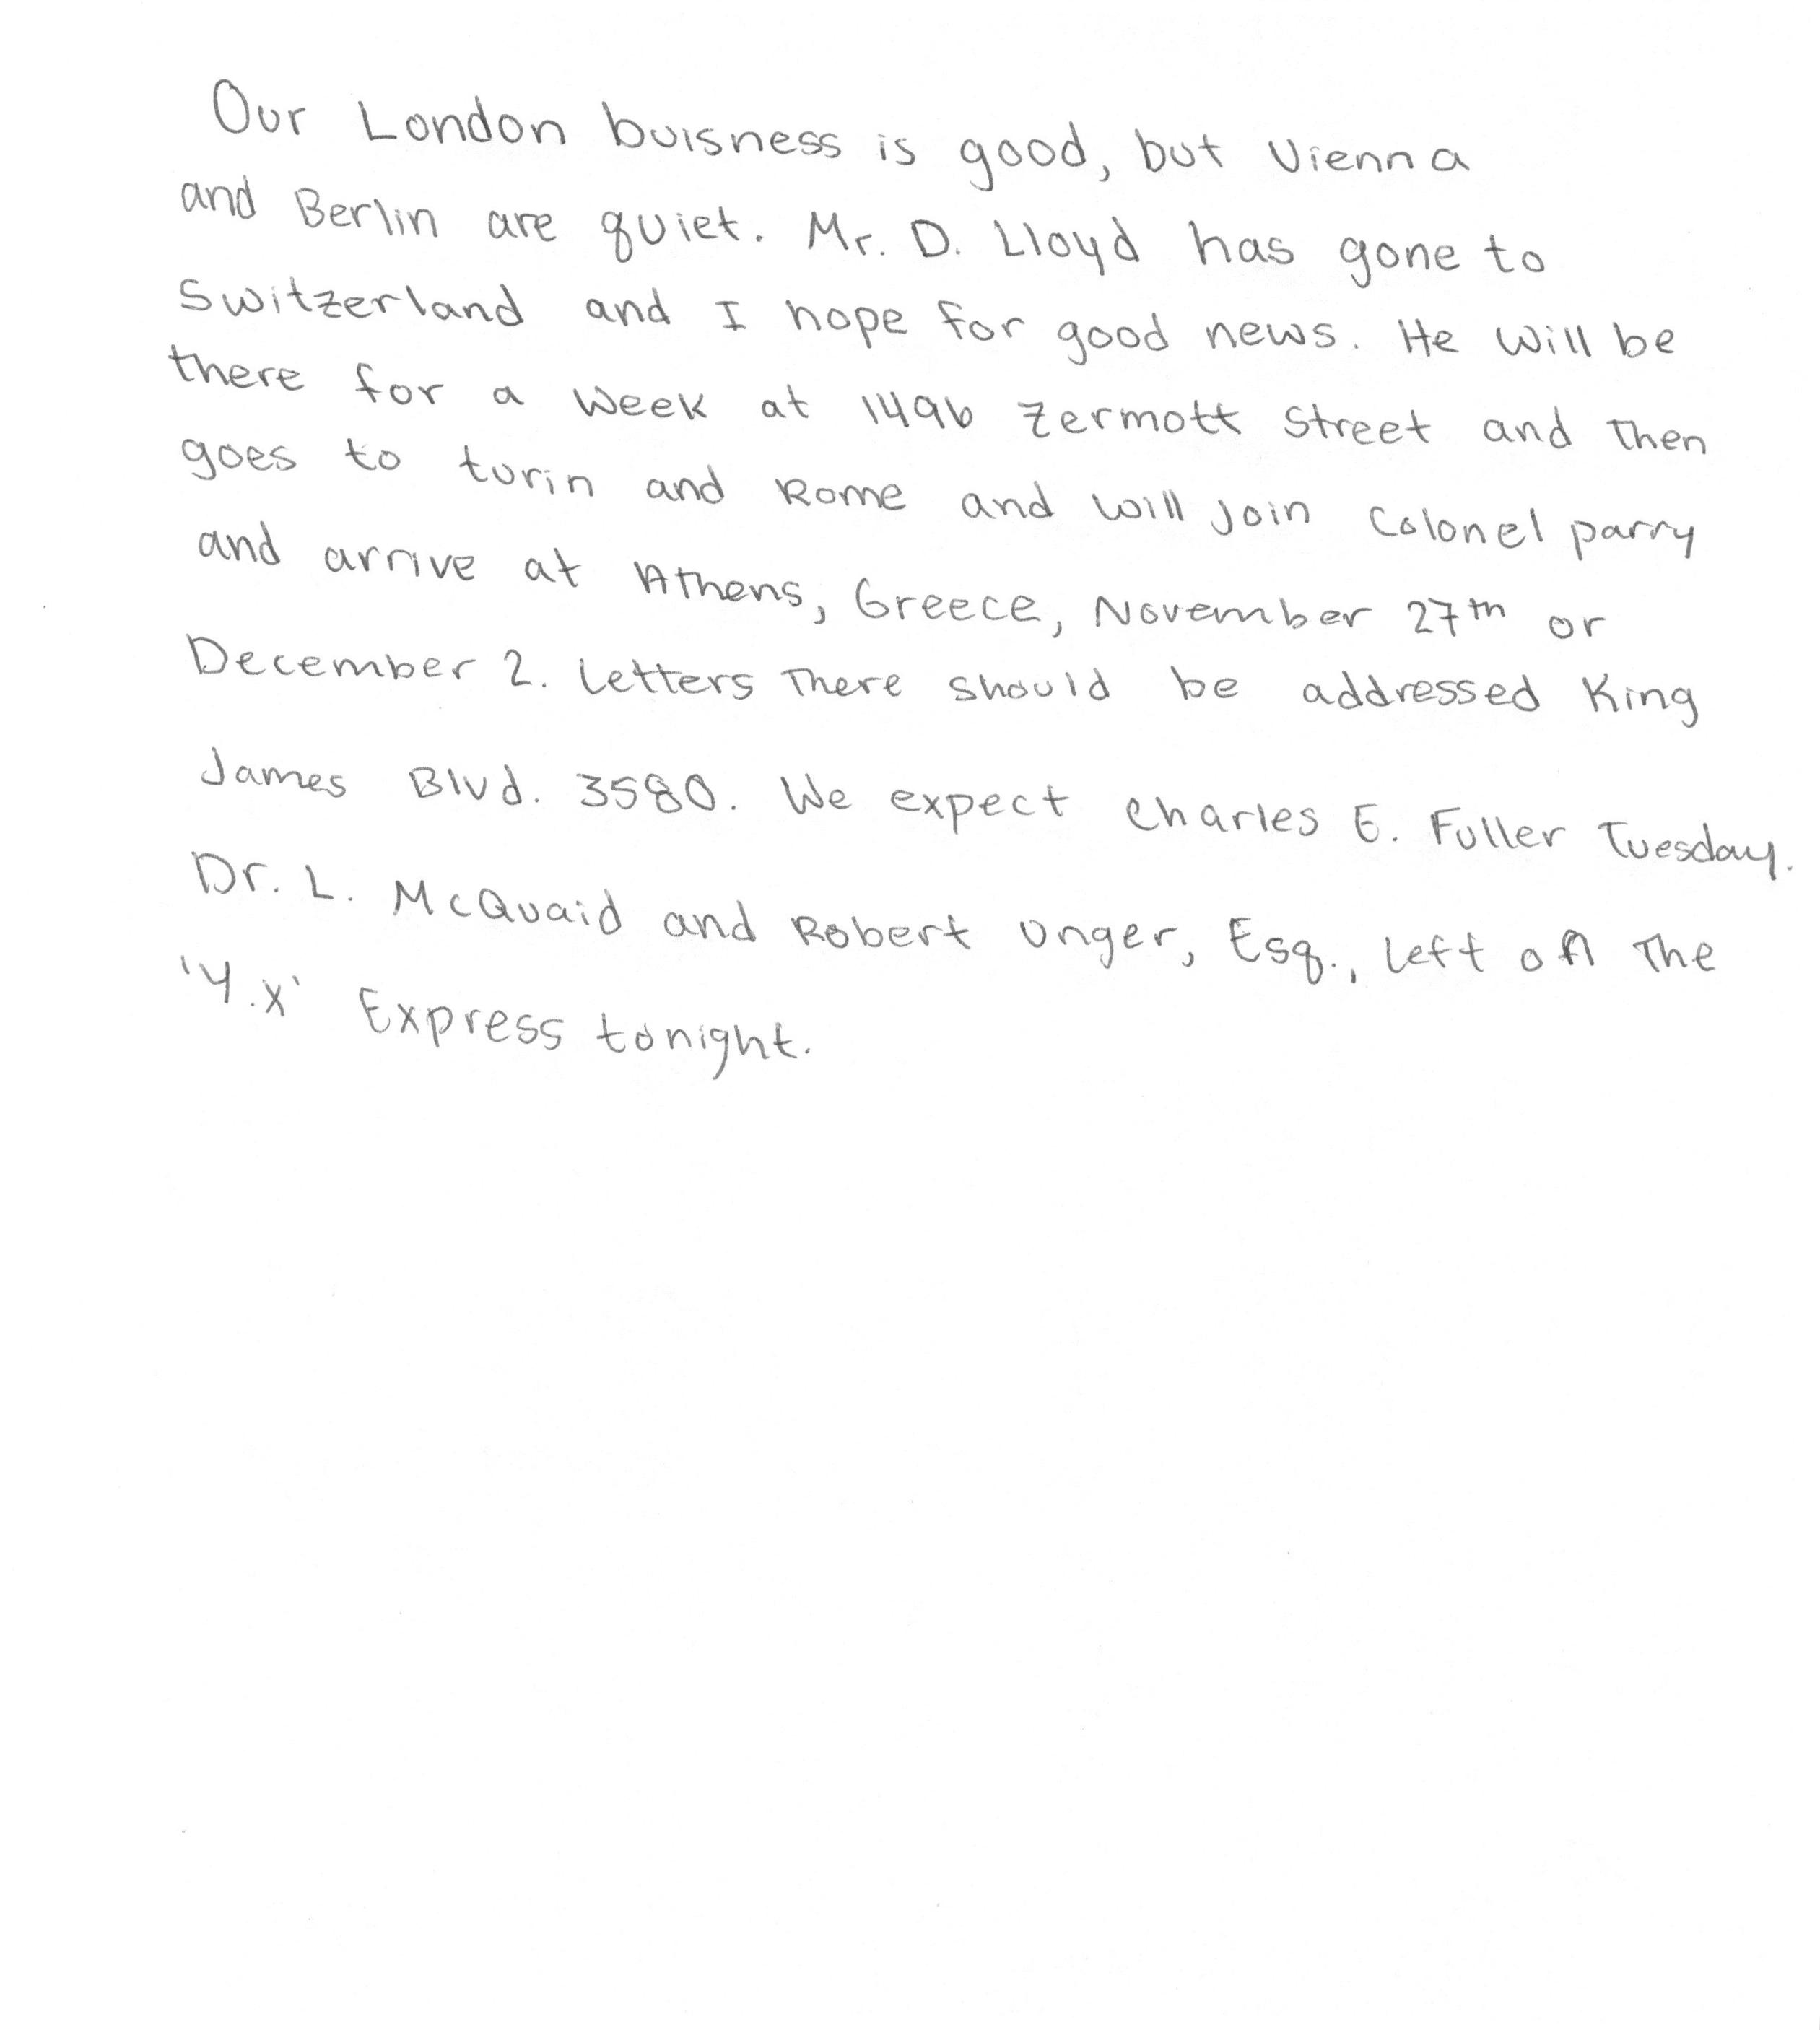 Our London buisness is good, but Vienna
and Berlin are quiet. Mr. D. Lloyd has gone to
Switzerland and I hope for good news. He will be
there for a week at 1496 Zermott Street and then
goes to turin and Rome and will join Colonel parry
and arrive at Athens, Greece, November 27th or
December 2. Letters There should be addressed King
James Blvd. 3580. We expect Charles E. Fuller Tuesday.
Dr. L. McQuaid and Robert Unger, Esq., left on The
'Y.X' Express tonight.